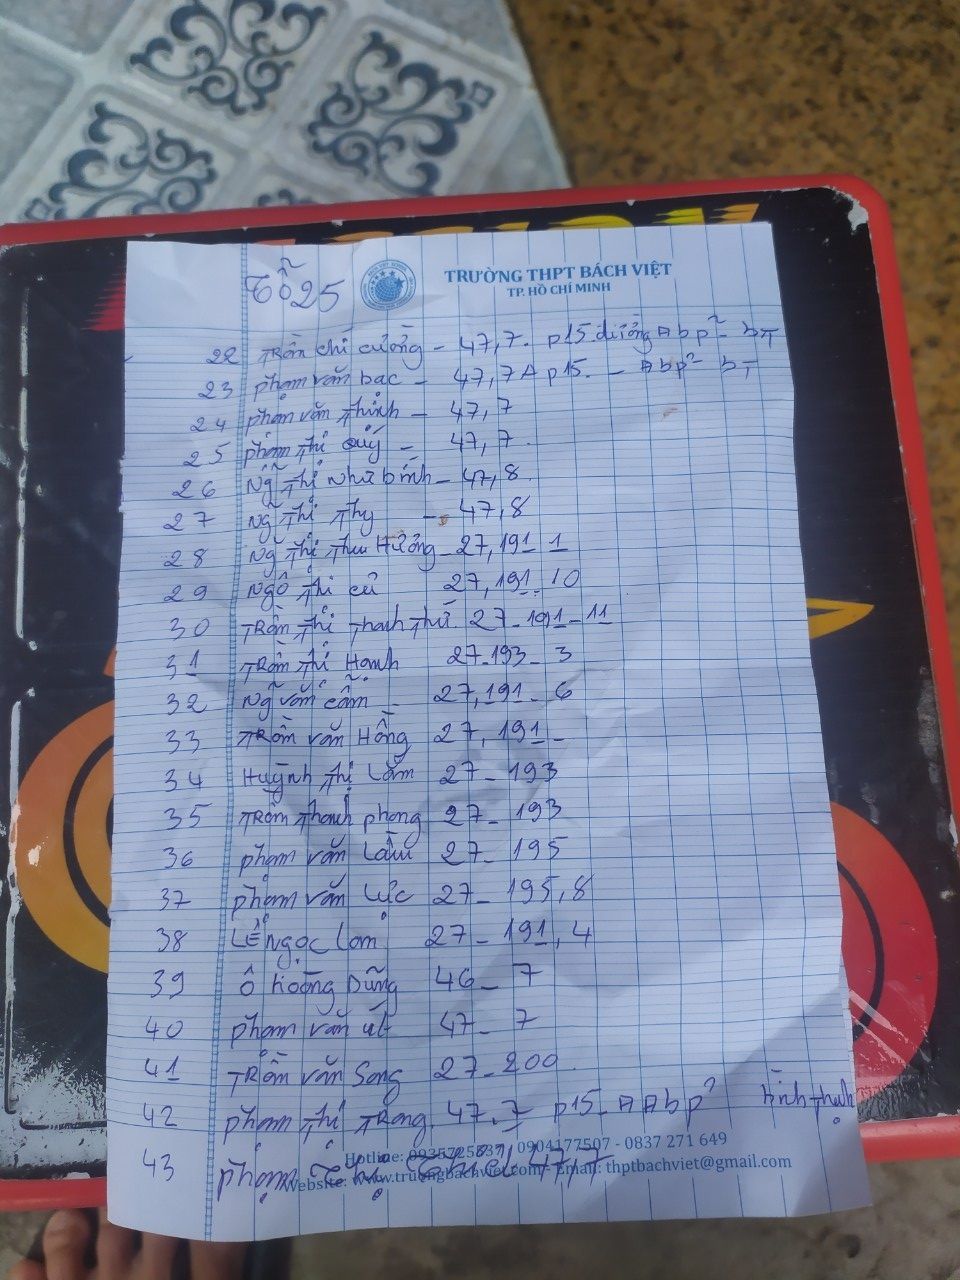 Tổ 25
TRƯỜNG THPT BÁCH VIỆT
TP. HỒ CHÍ MINH
22 Trần chí cường - 47,7. p15 đường Abp² bT
23 phạm văn bạc - 47,7A p15. - Abp² bT
24 phạm văn thịnh - 47,7
25 phạm thị quý - 47,7.
26 Ng~ thị như bình - 47,8.
27 Ng~ thị thy - 47,8
28 Ng~ thị thu Hường - 27,191 1
29 Ngô thị cư 27,191. 10
30 Trần thị thanh thư 27-191-11
31 Trần thị Hạnh 27-193-3
32 Ng~ văn cẩm - 27,191-6
33 Trần văn Hồng 27,191-
34 Huỳnh thị Lắm 27-193
35 Trần thanh phong 27-193
36 phạm văn Lâm 27-195
37 phạm văn Lực 27-195,8
38 Lê Ngọc Lan 27-191,4
39 Ô Hoàng Dũng 46-7
40 phạm văn út 47-7
41 Trần văn Song 27-200.
42 phạm thị Trong. 47.7 p15-A Abp² bình thạnh
43 phạm Thị 47,7
Hotline: 0904177507 - 0837 271 649
Website: www.truongbachviet.com - Email: thptbachviet@gmail.com